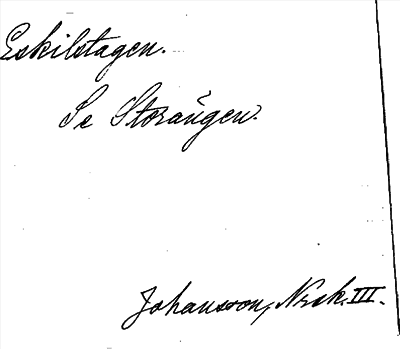 Eskilstagen.
Se Storängen.
Johansson, Nrsk. III.